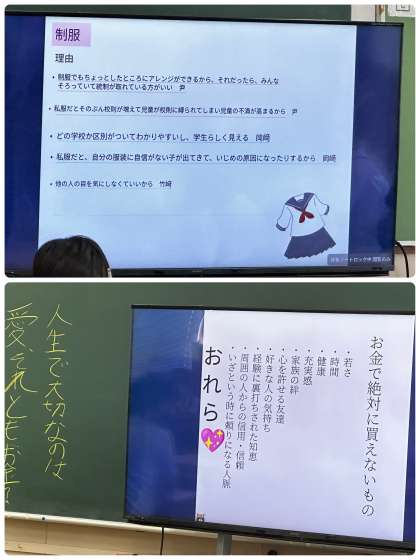 制服
理由
・制服でもちょっとしたところにアレンジができるから、それだったら、みんな
そろっていて統制が取れている方がいい 尹
・私服だとそのぶん校則が増えて児童が校則に縛られてしまい児童の不満が高まるから 尹
・どの学校か区別がついてわかりやすいし、学生らしく見える 岡﨑
・私服だと、自分の服装に自信がない子が出てきて、いじめの原因になったりするから 岡﨑
・他の人の目を気にしなくていいから 竹﨑
お金で絶対に買えないもの
・若さ
・時間
・健康
・充実感
・家族の絆
・心を許せる友達
・好きな人の気持ち
・経験に裏打ちされた知恵
・周囲の人からの信用・信頼
・いざという時に頼りになる人脈
おれら💖
人生で大切なのは
愛、それともお金?